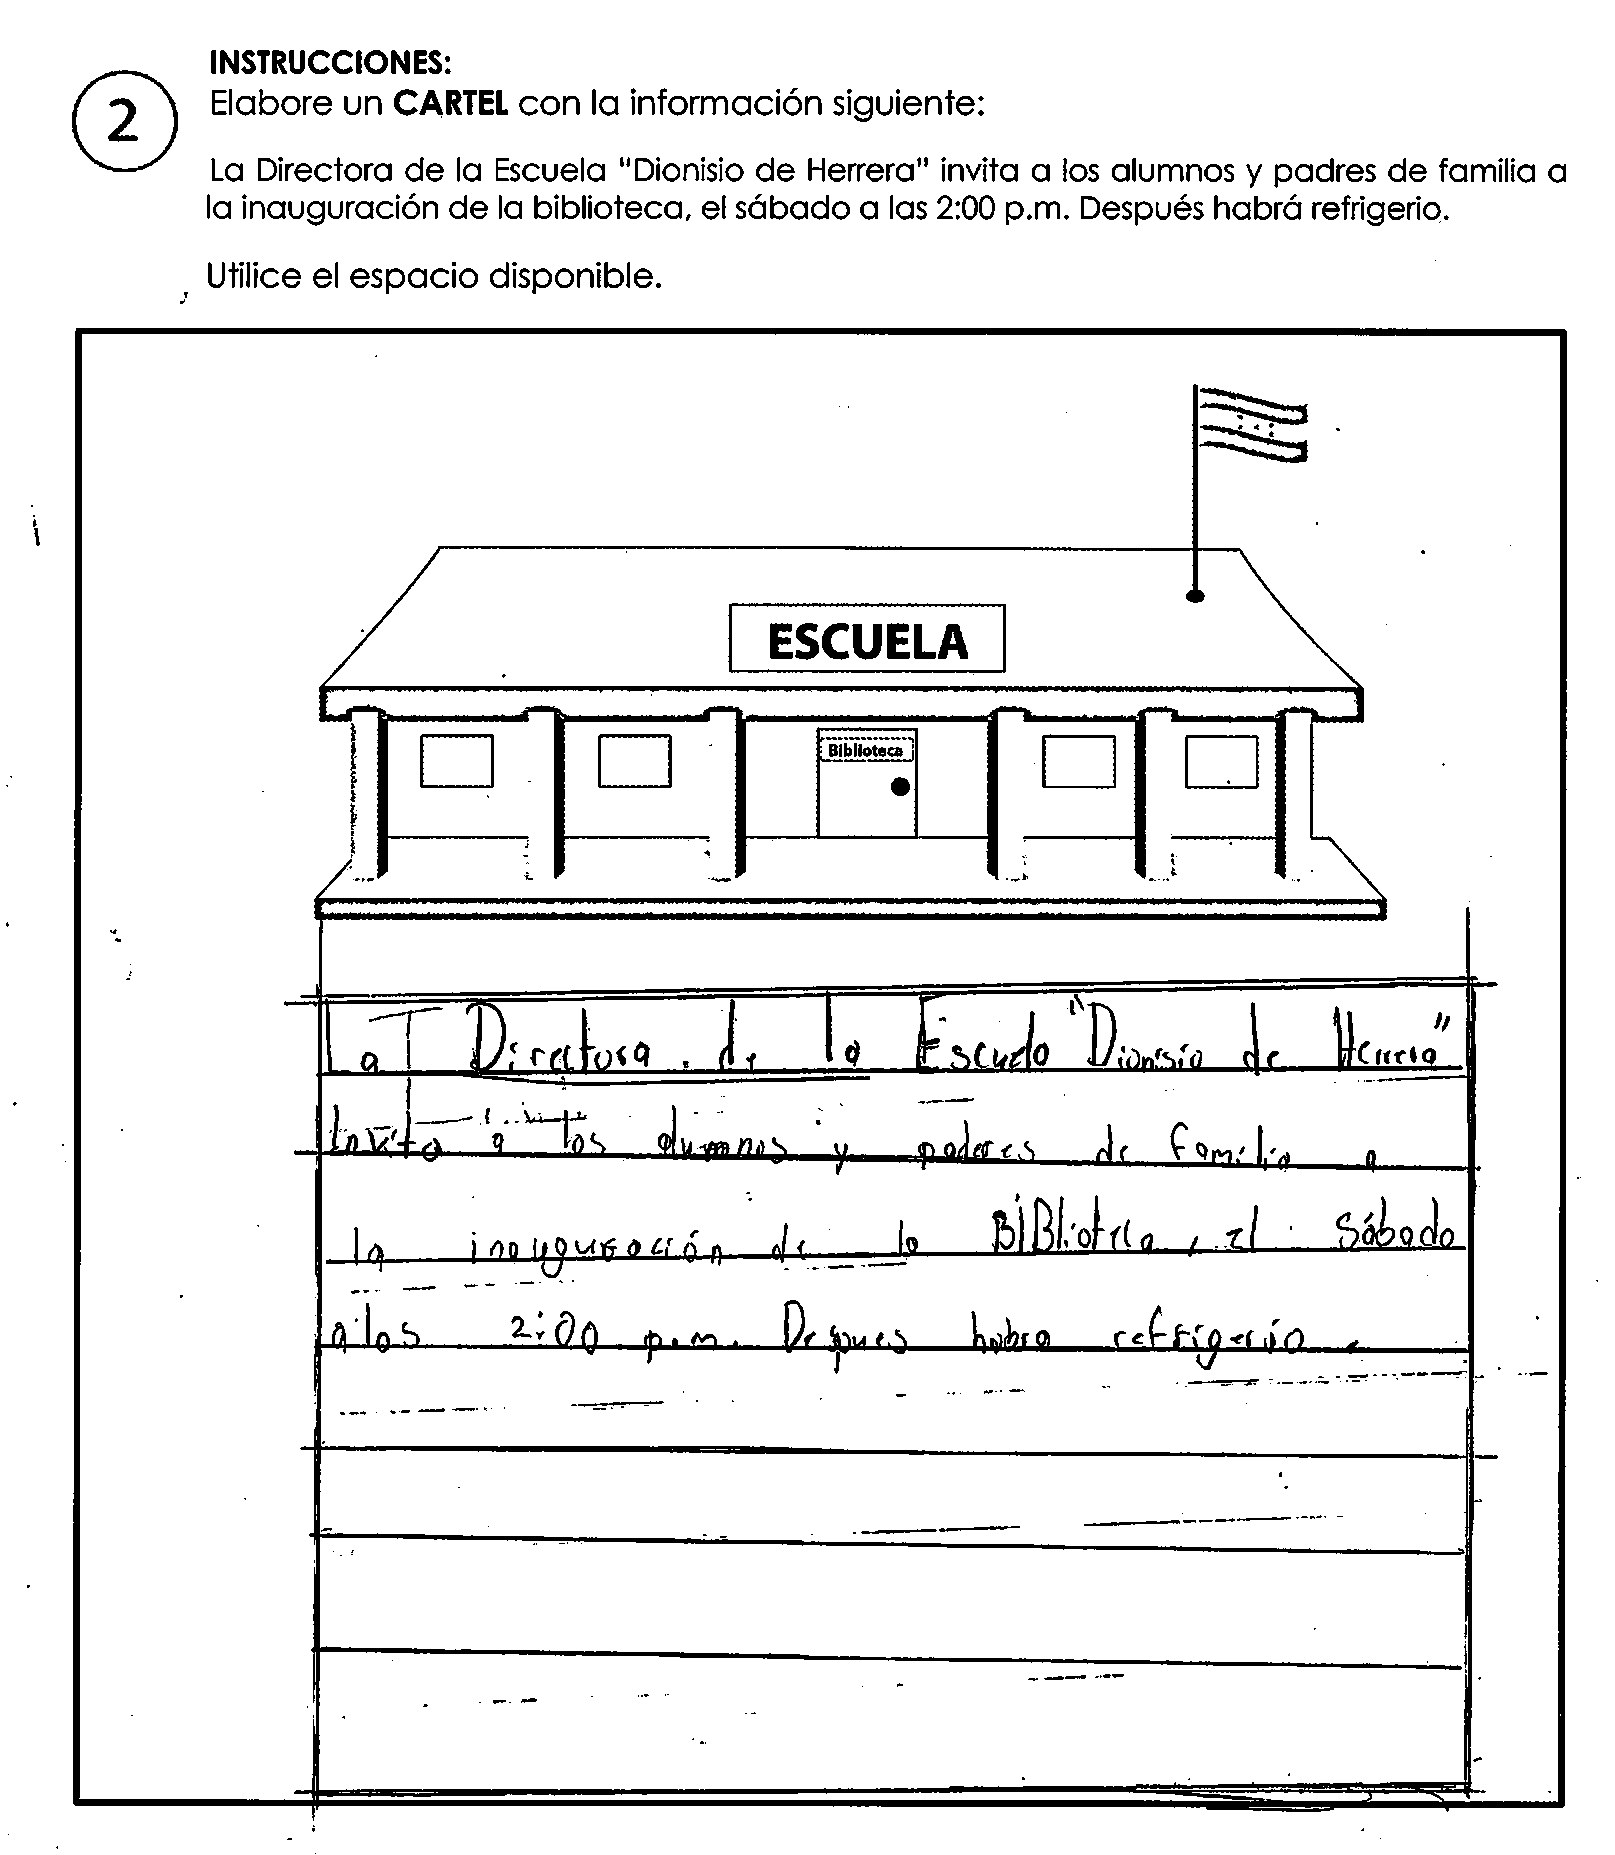 INSTRUCCIONES:
2
Elabore un CARTEL con la información siguiente:
La Directora de la Escuela "Dionisio de Herrera" invita a los alumnos y padres de familia a
la inauguración de la biblioteca, el sábado a las 2:00 p.m. Después habrá refrigerio.
Utilice el espacio disponible.
ESCUELA
Biblioteca
La Directora de la Escuela "Dionisio de Herrera"
Invita a los alumnos y paderes de familia a
la inauguración de la BiBlioteca, el Sábado
a las 2:00 p.m. Despues habra refrigerio.